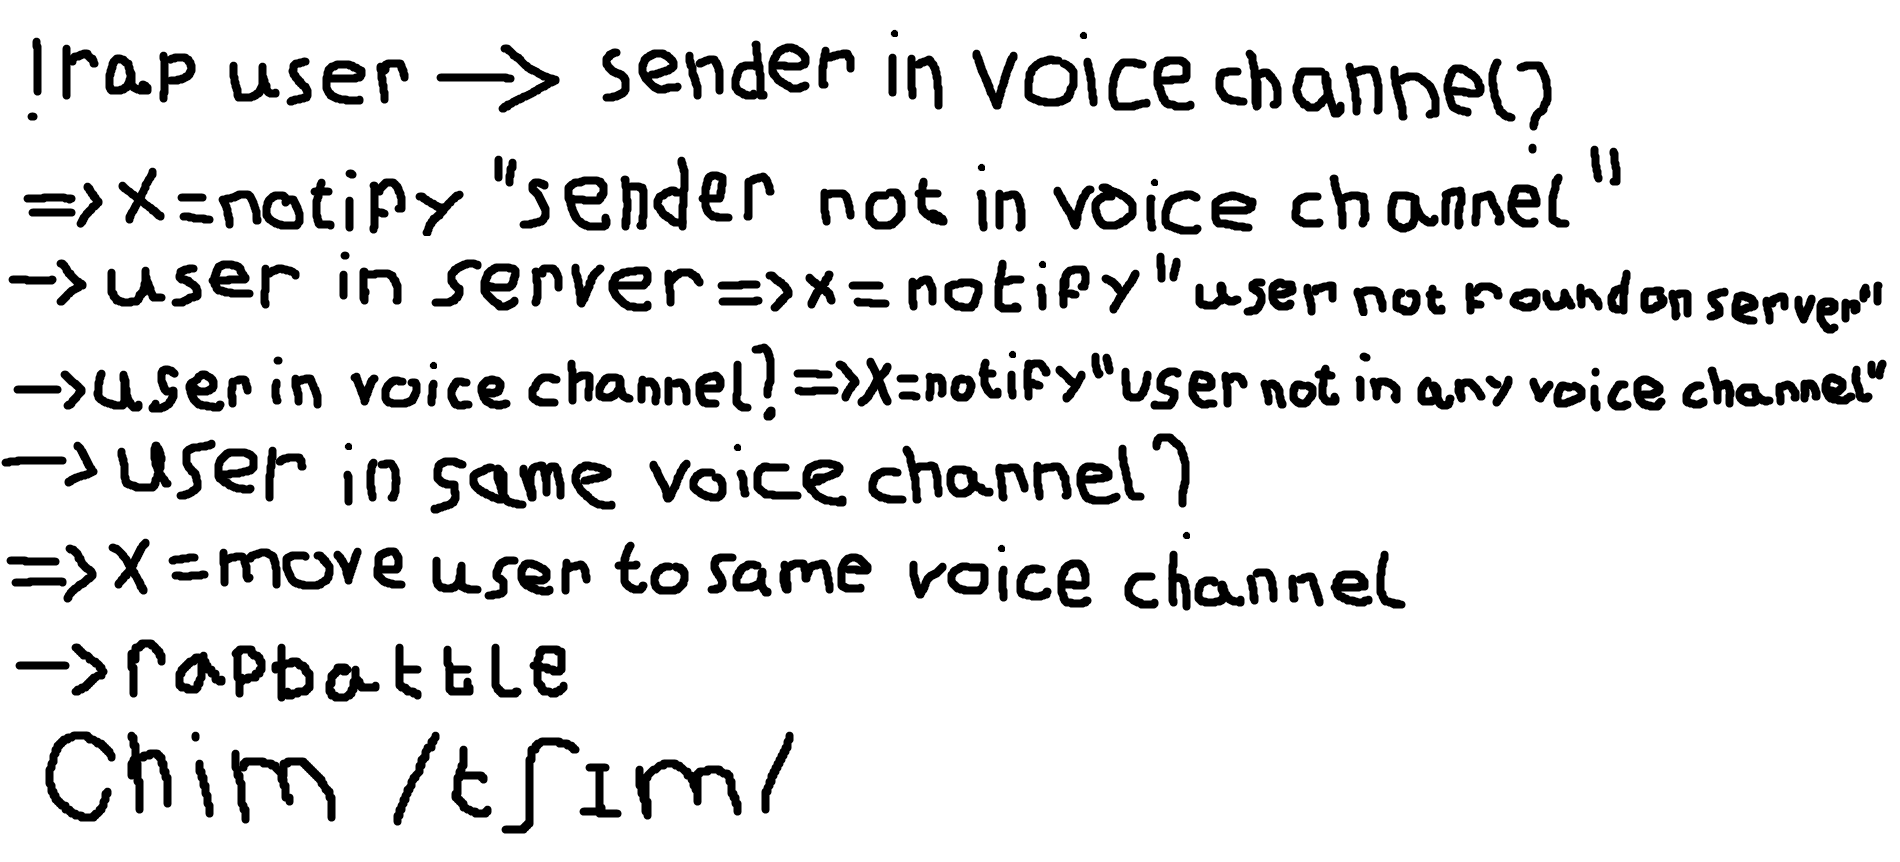 !rap user → sender in voice channel?
=> x = notify "sender not in voice channel"
→ user in server => x = notify "user not found on server"
→ user in voice channel? => x = notify "user not in any voice channel"
→ user in same voice channel?
=> x = move user to same voice channel
→ rap battle
Chim /tʃɪm/